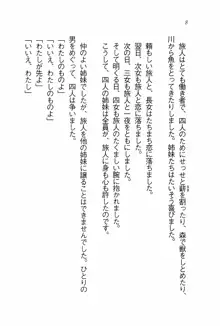 8
旅人はとても働き者で、四人のためにせっせと薪を割ったり、森で獣をしとめたり、
川から魚をとってきたりしました。姉妹たちはたいそう喜びました。
頼もしい旅人と、長女はたちまち恋に落ちました。
次の日、次女も旅人と恋に落ちました。
次の日、三女も旅人と一夜をともにしました。
そして明くる日、四女も旅人のたくましい腕に抱かれました。
全員が、旅人に身も心も許したのです。
仲のよい姉妹でしたが、旅人を他の姉妹に譲ることはできませんでした。ひとりの
男をめぐって、四人の姉妹は争いました。
「わたしのものよ」
「いいえ、わたしのものよ」
「わたしが先よ」
「いいえ、わたし」